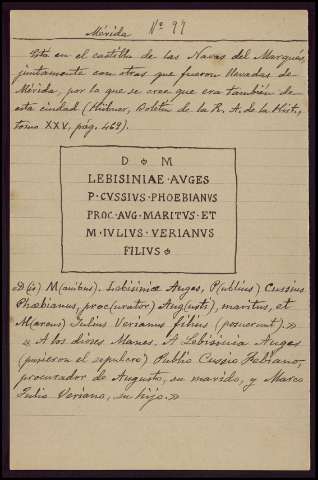 Mérida Nº 99
Esta en el castillo de las Navas del Marqués,
juntamente con otras que fueron llevadas de
Mérida, por lo que se cree que era también de
esta ciudad (Hübner, Boletín de la R. A. de la Hist.,
tomo XXV, pág. 469).
D M
LEBISINIAE·AVGES
P·CVSSIVS·PHOEBIANVS
PROC·AVG·MARITVS·ET
M·IVLIVS·VERIANVS
FILIVS
«D(is) M(anibus). Lebisiniæ Auges, P(ublius) Cussius
Phœbianus, proc(urator) Aug(usti), maritus, et
M(arcus) Julius Verianus filius (posuerunt).»
«A los dioses Manes. A Lebisinia Auges
(pusieron el sepulcro) Publio Cussio Febiano,
procurador de Augusto, su marido, y Marco
Julio Veriano, su hijo.»